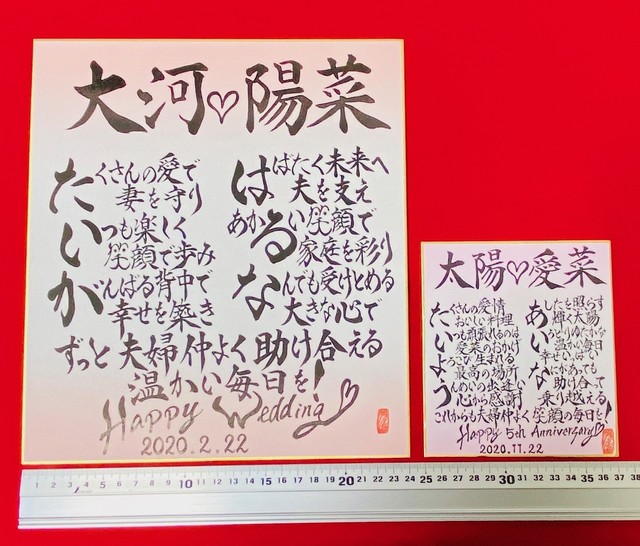 大河♡陽菜
たくさんの愛で
妻を守り
いつも楽しく
笑顔で歩み
がんばる背中で
幸せを築き
はばたく未来へ
夫を支え
あかるい笑顔で
家庭を彩り
なんでも受けとめる
大きな心で
ずっと夫婦仲よく助け合える
温かい毎日を!
Happy Wedding♡
2020.2.22
太陽♡愛菜
たくさんの愛情
おいしい料理
いつも頑張れるのは
愛菜のおかげ
生まれる
最高の場所
うんめいの出逢い
心から感謝
あしたを照らす
輝く太陽
温かい
幸せ
助け合って
乗り越える
これからも夫婦仲よく笑顔の毎日を!
Happy 5th Anniversary♡
2020.11.22
1 2 3 4 5 6 7 8 9 10 11 12 13 14 15 16 17 18 19 20 21 22 23 24 25 26 27 28 29 30 31 32 33 34 35 36 37 38